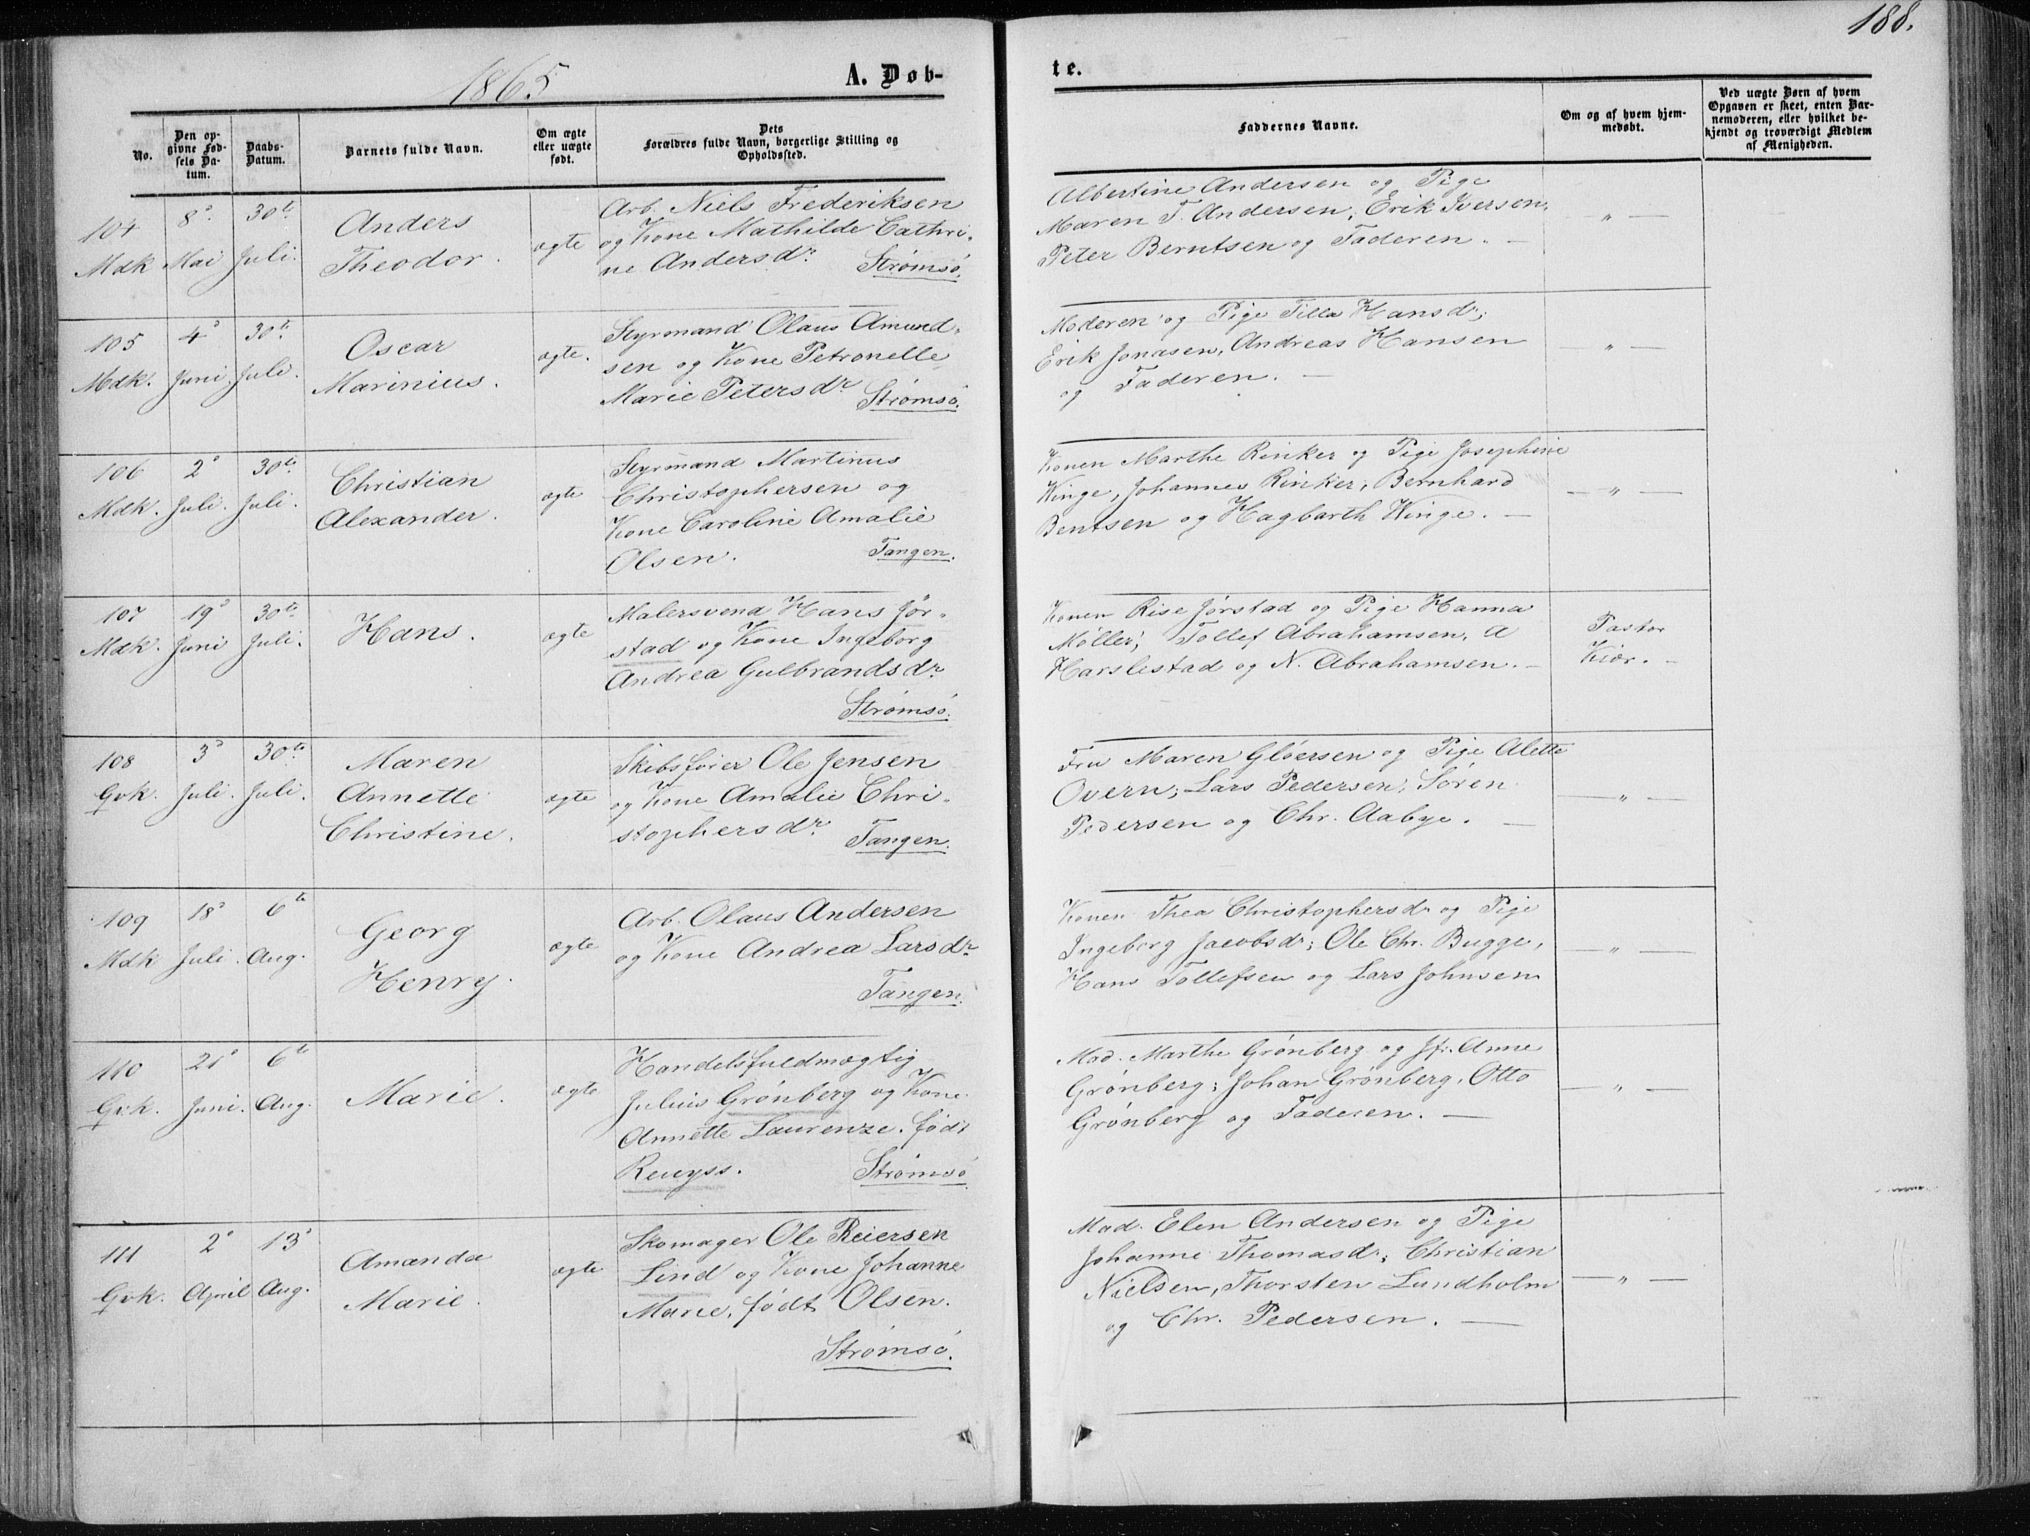 188.
1865
A. Døb-
te.
No.
Den op-
givne Fød-
sels Da-
tum.
Daabs-
Datum.
Barnets fulde Navn.
Om ægte
eller uægte
født.
Dets
Forældres fulde Navn, borgerlige Stilling og
Opholdssted.
Faddernes Navne.
Om og af hvem hjem-
medøbt.
Ved uægte Børn af hvem
Opgaven er skeet, enten Bar-
nemoderen, eller hvilket be-
kjendt og troværdigt Medlem
af Menigheden.
104
Mdk
8de
Mai
30te
Juli.
Anders
Theodor.
ægte
Arb. Niels Frederiksen
og Kone Mathilde Cathri-
ne Andersdr.
Strømsø.
Albertine Andersen og Pige
Maren T. Andersen, Erik Iversen,
Peter Berntsen og Faderen. —
— „ —
105
Mdk.
4de
Juni
30te
Juli.
Oscar
Marinius.
ægte.
Styrmand Olaus Amund-
sen og Kone Petronelle
Marie Petersdr
Strømsø.
Moderen og Pige Tilla Hansdr;
Erik Jonasen, Andreas Hansen
og Faderen. —
— „ —
106
Mdk.
2de
Juli.
30te
Juli.
Christian
Alexander.
ægte
Styrmand Martinus
Christophersen og
Kone Caroline Amalie
Olsen.
Tangen.
Konen Marthe Rinker og Pige Josephine
Winge, Johannes Rinker, Bernhard
Bentsen og Hagbarth Winge. —
— „ —
107
Mdk.
19de
Juni
30te
Juli.
Hans.
ægte
Malersvend Hans Jør-
stad og Kone Ingeborg
Andrea Gulbrandsdr
Strømsø.
Konen Rise Jørstad og Pige Hanna
Møller; Tollef Abrahamsen, A
Harslestad og N. Abrahamsen. —
Pastor
Kiær. —
108
Qvk.
3de
Juli.
30te
Juli.
Maren
Annette
Christine.
ægte
Skibsfører Ole Jensen
og Kone Amalie Chri-
stophersdr.
Tangen.
Fru Maren Gløersen og Pige Alette
Overn; Lars Pedersen, Søren
Pedersen og Chr. Aabye. —
— „ —
109
Mdk
18de
Juli.
6te
Aug.
Georg
Henry.
ægte
Arb. Olaus Andersen
og Kone Andrea Larsdr
Tangen.
Konen Thea Christophersdr og Pige
Ingeborg Jacobsdr; Ole Chr. Bugge,
Hans Tollefsen og Lars Johnsen
— „ —
110
Qvk.
21de
Juni.
6te
Aug.
Marie.
ægte
Handelsfuldmægtig
Julius Grønberg og Kone
Annette Laurenze, født
Reuyss.
Strømsø
Mad. Marthe Grønberg og Jfr. Anne
Grønberg; Johan Grønberg, Otto
Grønberg og Faderen. —
— „ —
111
Qvk.
2de
April
13de
Aug.
Amanda
Marie.
ægte
Skomager Ole Reiersen
Lind og Kone Johanne
Marie, født Olsen.
Strømsø.
Mad. Elen Andersen og Pige
Johanne Thomasdr; Christian
Nielsen, Thorsten Lundholm
og Chr. Pedersen. —
— „ —